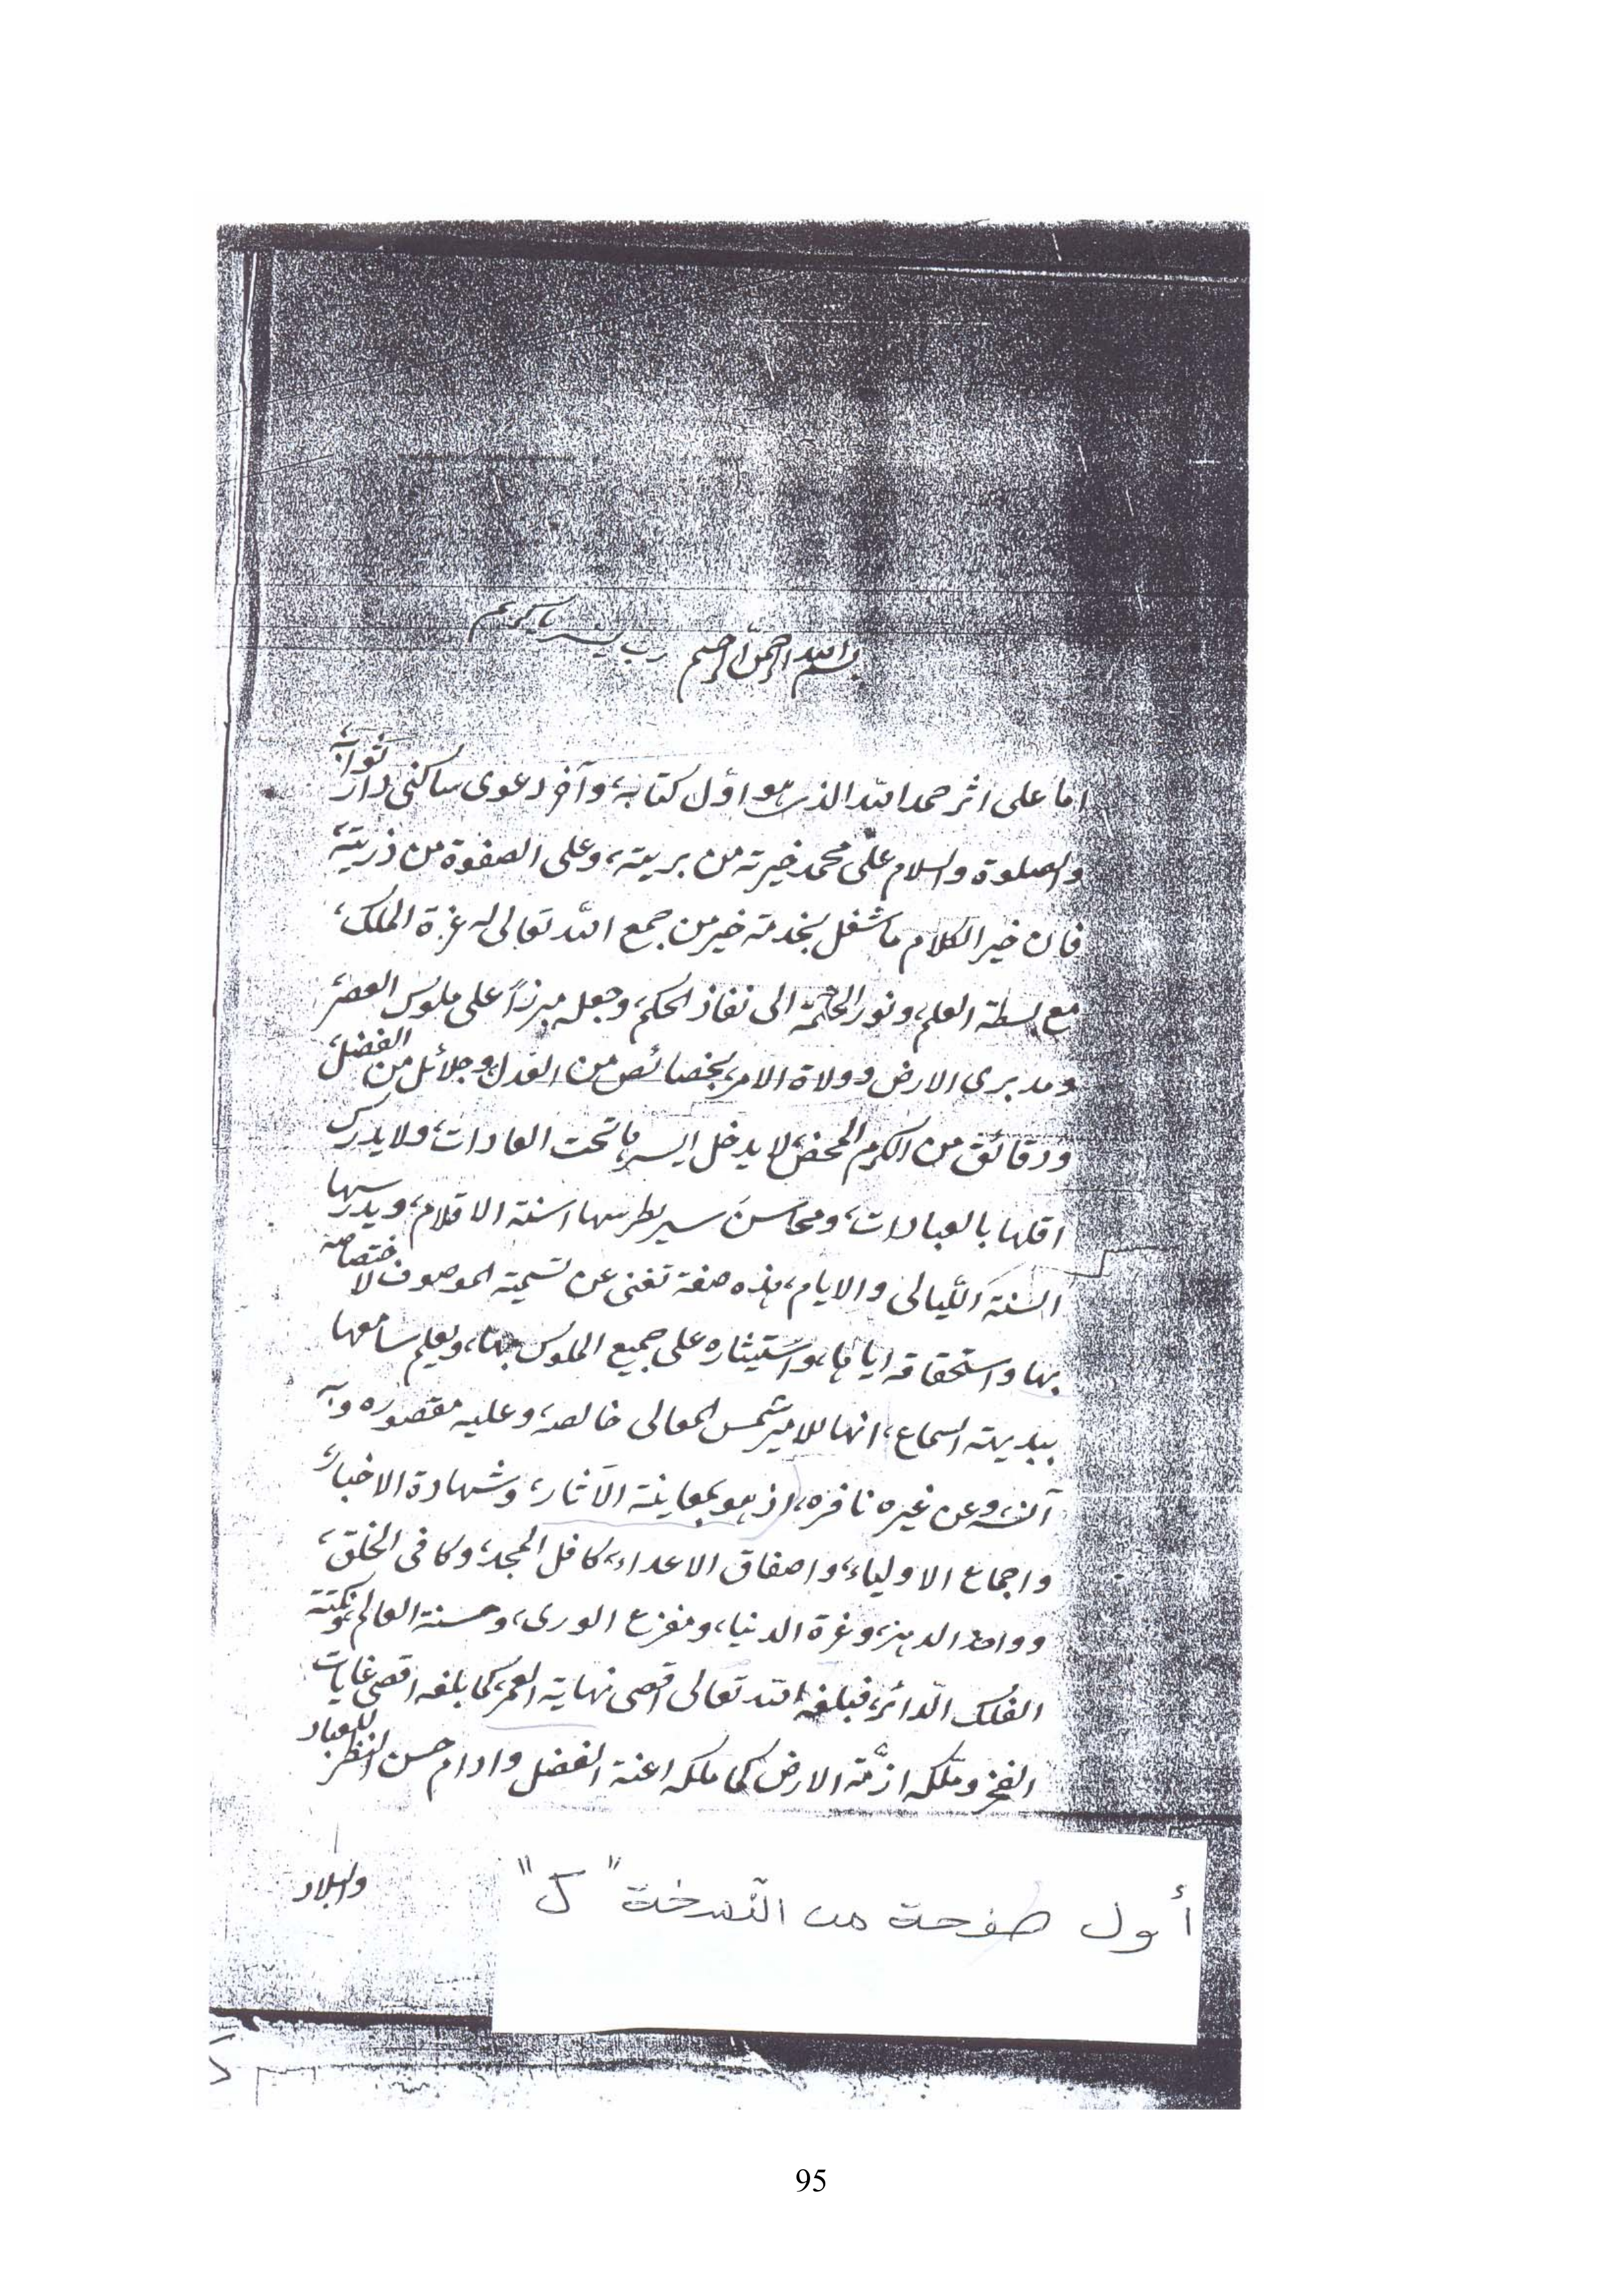 بسم الله الرحمن الرحيم رب يسر يا كريم
اما على اثر حمد الله الذى هو اول كتابه، وآخر دعوى ساكنى دار ثوابه،
والصلوة والسلام على محمد خيرته من بريته، وعلى الصفوة من ذريته،
فان خير الكلام ما شغل بخدمة خير من جمع الله تعالى له عزة الملك،
مع بسطة العلم، ونور الحكمة الى نفاذ الحكم، وجعله مبرزاً على ملوك العصر،
ومدبرى الارض وولاة الامر، بخصائص من العدل، وجلائل من الفضل،
ودقائق من الكرم المحض، لا يدخل ايسرها تحت العادات، ولا يدرك
اقلها بالعبارات، ومحاسن سير يطرسها اسنة الاقلام، ويدرسها
السنة الليالى والايام، هذه صفة تغنى عن تسمية الموصوف لاختصاصه
بها واستحقاقه اياها، واستيثاره على جميع الملوك بها، ويعلم سامعها
ببديهة السماع، انها للامير شمس المعالى خالصة، وعليه مقصوره وبه
آنسه، وعن غيره نافره، اذ هو بمعاينة الآثار، وشهادة الاخبار،
واجماع الاولياء، واصفاق الاعداء، كافل المجد، وكافى الخلق،
وواحد الدهر، وغرة الدنيا، ومفزع الورى، وحسنة العالم، ونكتة
الفلك الدائر، فبلغه الله تعالى اقصى نهاية العمر، كما بلغه اقصى غايات
الفخر وملكه ازمة الارض كما ملكه اعنة الفضل وادام حسن النظر للعباد
والبلاد
أول صفحة من النسخة "ك"
95